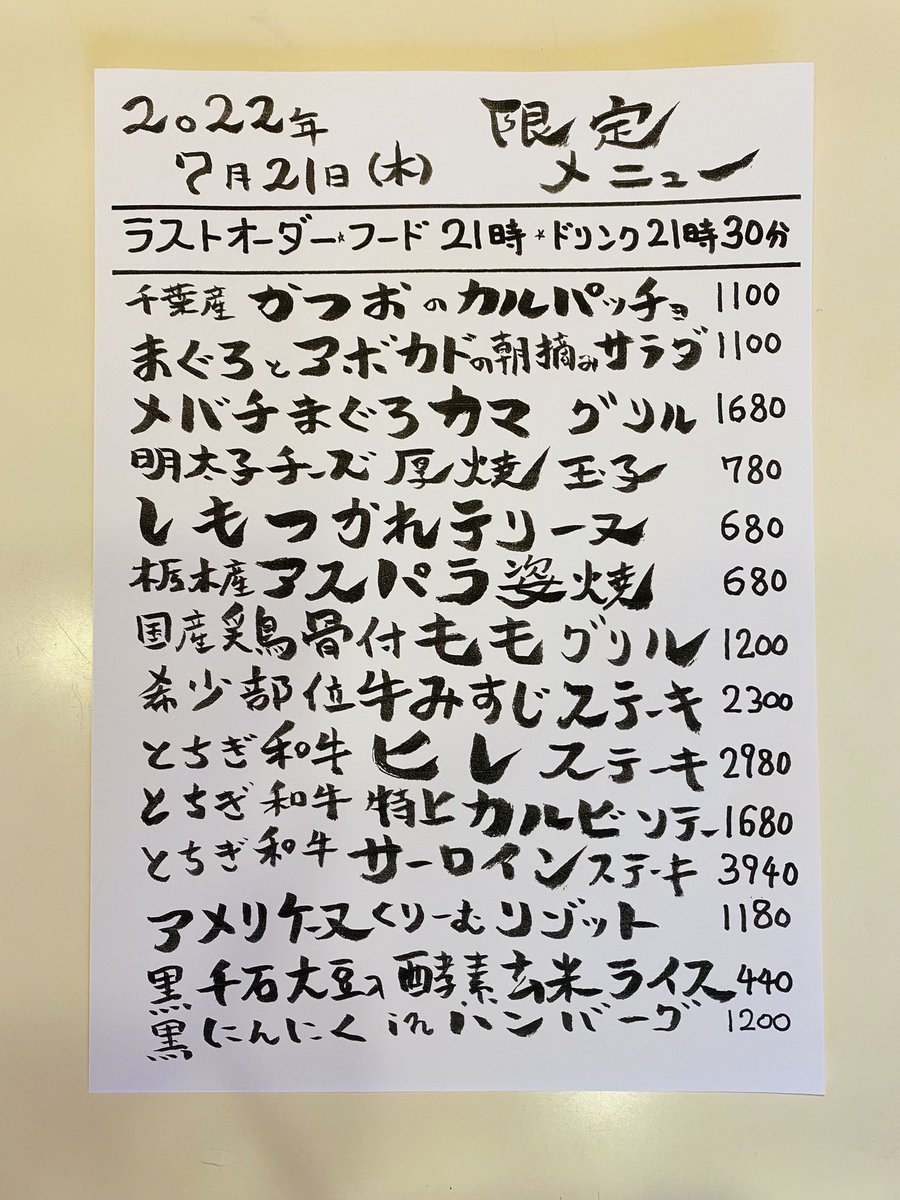 2022年 限定
7月21日(木) メニュー
ラストオーダー*フード 21時 *ドリンク21時30分
千葉産 かつおのカルパッチョ 1100
まぐろとアボカドの朝摘みサラダ 1100
メバチまぐろカマ グリル 1680
明太子チーズ厚焼玉子 780
しもつかれテリーヌ 680
栃木産アスパラ姿焼 680
国産鶏骨付ももグリル 1200
希少部位牛みすじステーキ 2300
とちぎ和牛 ヒレステーキ 2980
とちぎ和牛 特上カルビソテー 1680
とちぎ和牛 サーロインステーキ 3940
アメリケーヌくりーむリゾット 1180
黒千石大豆入酵素玄米ライス 440
黒にんにくinハンバーグ 1200